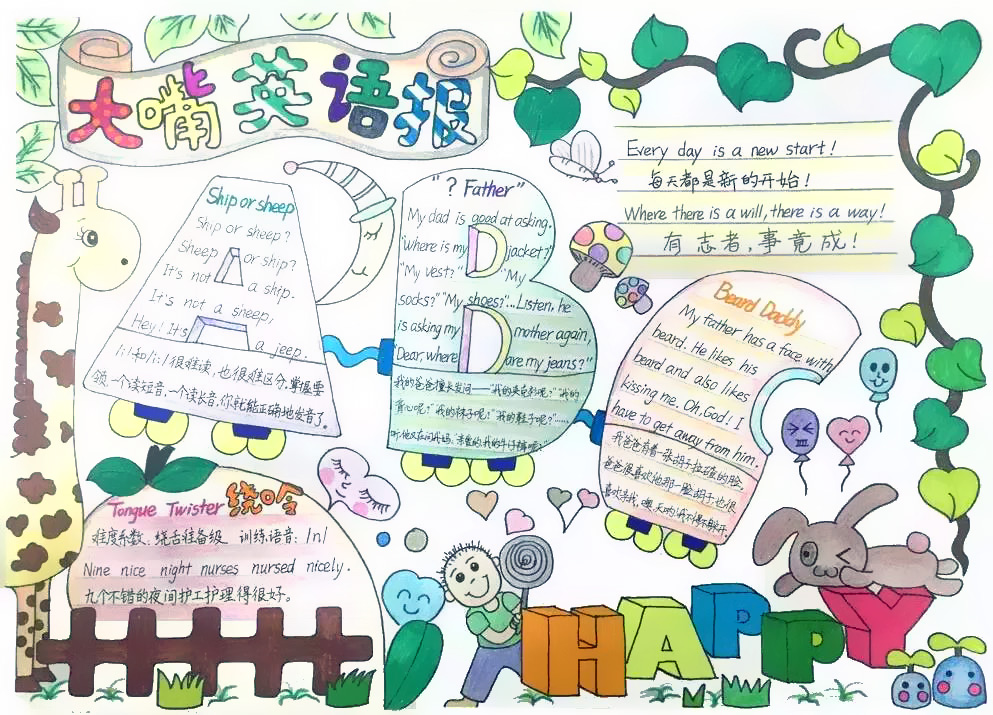 大嘴英语报
Every day is a new start!
每天都是新的开始!
Where there is a will, there is a way!
有志者,事竟成!
Ship or sheep
Ship or sheep?
Sheep or ship?
It's not a ship.
It's not a sheep,
Hey! It's a jeep.
/i/和/i:/很难读,也很难区分,掌握要
领,一个读短音,一个读长音,你就能正确地发音了。
"? Father"
My dad is good at asking.
"Where is my jacket?"
"My vest?" "My
socks?" "My shoes?"...Listen, he
is asking my mother again,
"Dear, where are my jeans?"
我的爸爸擅长发问——"我的夹克衫呢?""我的
背心呢?""我的袜子呢?""我的鞋子呢?"……
听,他又在问我妈,"亲爱的,我的牛仔裤呢?"
Beard Daddy
My father has a face with
beard. He likes his
beard and also likes
kissing me. Oh, God! I
have to get away from him.
我爸爸有着一张胡子拉碴的脸
爸爸很喜欢他那一脸胡子,也很
喜欢亲我,噢,天哪!我不得不躲开
Tongue Twister 绕口令
难度系数:绕舌准备级 训练语音:/n/
Nine nice night nurses nursed nicely.
九个不错的夜间护工护理得很好。
HAPPY